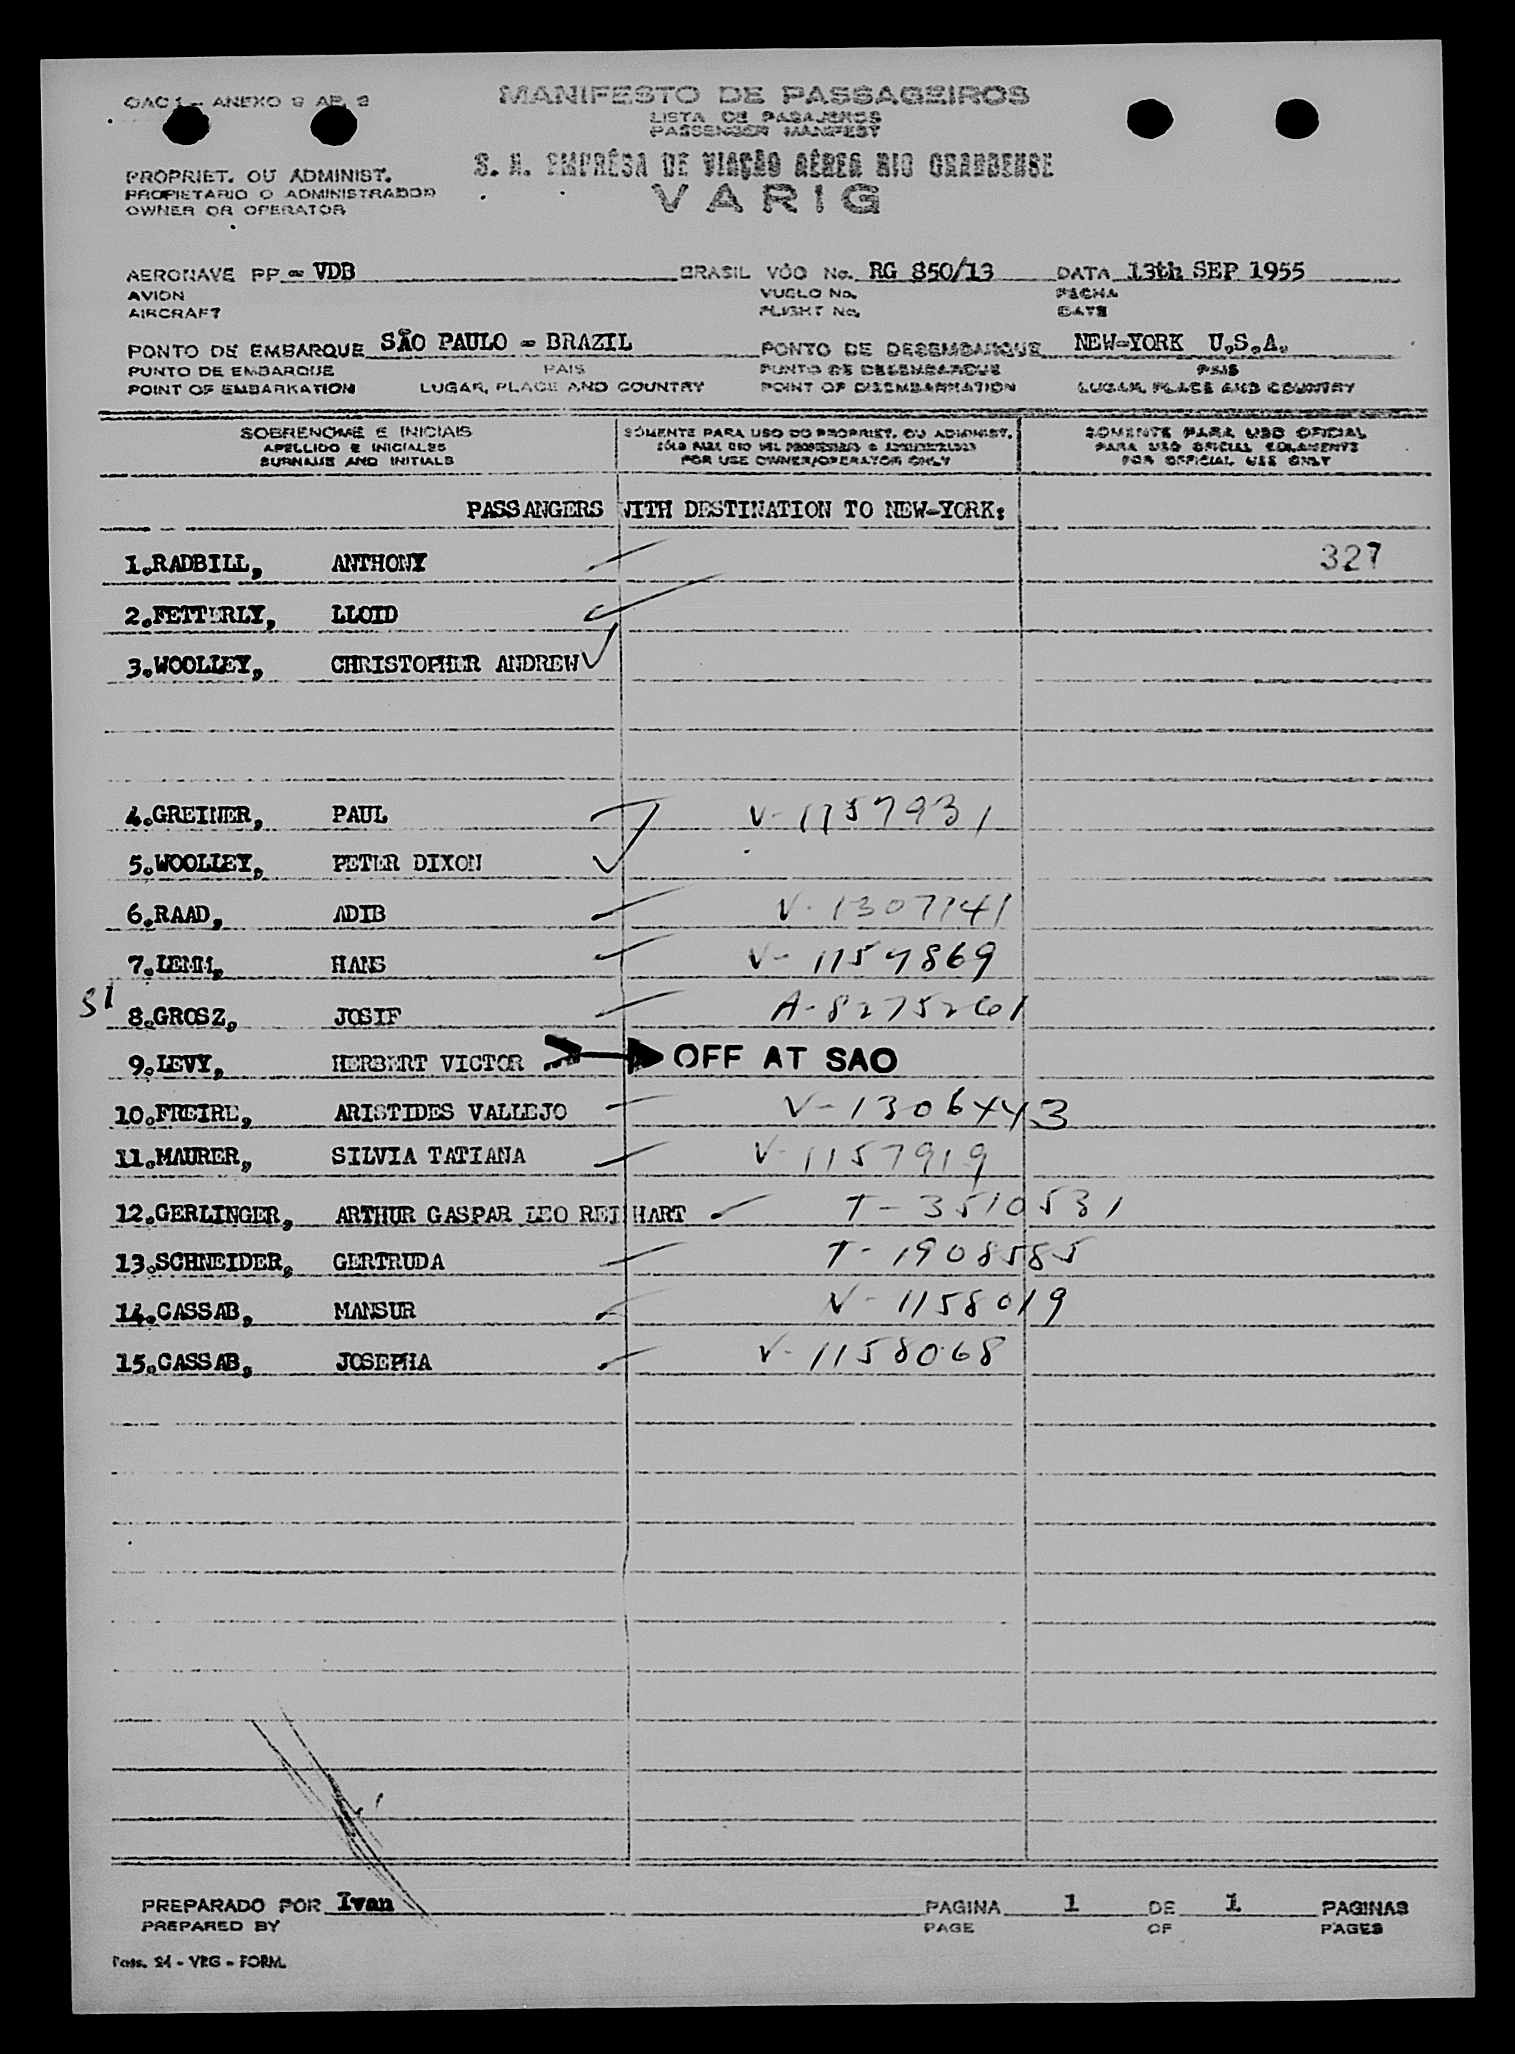 OAC 1 - ANEXO 9 AP. 2
MANIFESTO DE PASSAGEIROS
LISTA DE PASAJEROS
PASSENGER MANIFEST
S. A. EMPRÊSA DE VIAÇÃO AÉREA RIO GRANDENSE
VARIG
PROPRIET. OU ADMINIST.
PROPIETARIO O ADMINISTRADOR
OWNER OR OPERATOR
AERONAVE PP - VDB BRASIL VÔO No. RG 850/13 DATA 13th SEP 1955
AVION VUELO No. FECHA
AIRCRAFT FLIGHT No. DATE
PONTO DE EMBARQUE SÃO PAULO - BRAZIL PONTO DE DESEMBARQUE NEW-YORK U.S.A.
PUNTO DE EMBARQUE PAIS PUNTO DE DESEMBARQUE PAIS
POINT OF EMBARKATION LUGAR, PLACE AND COUNTRY POINT OF DISEMBARKATION LUGAR, PLACE AND COUNTRY
SOBRENOME E INICIAIS SÓMENTE PARA USO DO PROPRIET. OU ADMINIST. SOMENTE PARA USO OFICIAL
APELLIDO E INICIALES SÓLO PARA USO DEL PROPIETARIO O ADMINISTRADOR PARA USO OFICIAL SOLAMENTE
SURNAME AND INITIALS FOR USE OWNER/OPERATOR ONLY FOR OFFICIAL USE ONLY
PASSANGERS WITH DESTINATION TO NEW-YORK:
1.RADBILL, ANTHONY 327
2.FETTERLY, LLOID
3.WOOLLEY, CHRISTOPHER ANDREW
4.GREINER, PAUL V-1157931
5.WOOLLEY, PETER DIXON
6.RAAD, ADIB V-1307141
7.LEMM, HANS V-1157869
51 8.GROSZ, JOSIF A-8275261
9.LEVY, HERBERT VICTOR OFF AT SAO
10.FREIRE, ARISTIDES VALLEJO V-1306443
11.MAURER, SILVIA TATIANA V-1157919
12.GERLINGER, ARTHUR GASPAR LEO REINHART T-3510531
13.SCHNEIDER, GERTRUDA T-1908585
14.CASSAB, MANSUR V-1158019
15.CASSAB, JOSEPHA V-1158068
PREPARADO POR Ivan PAGINA 1 DE 1 PAGINAS
PREPARED BY PAGE OF PAGES
Pass. 24 - VRG - FORM.